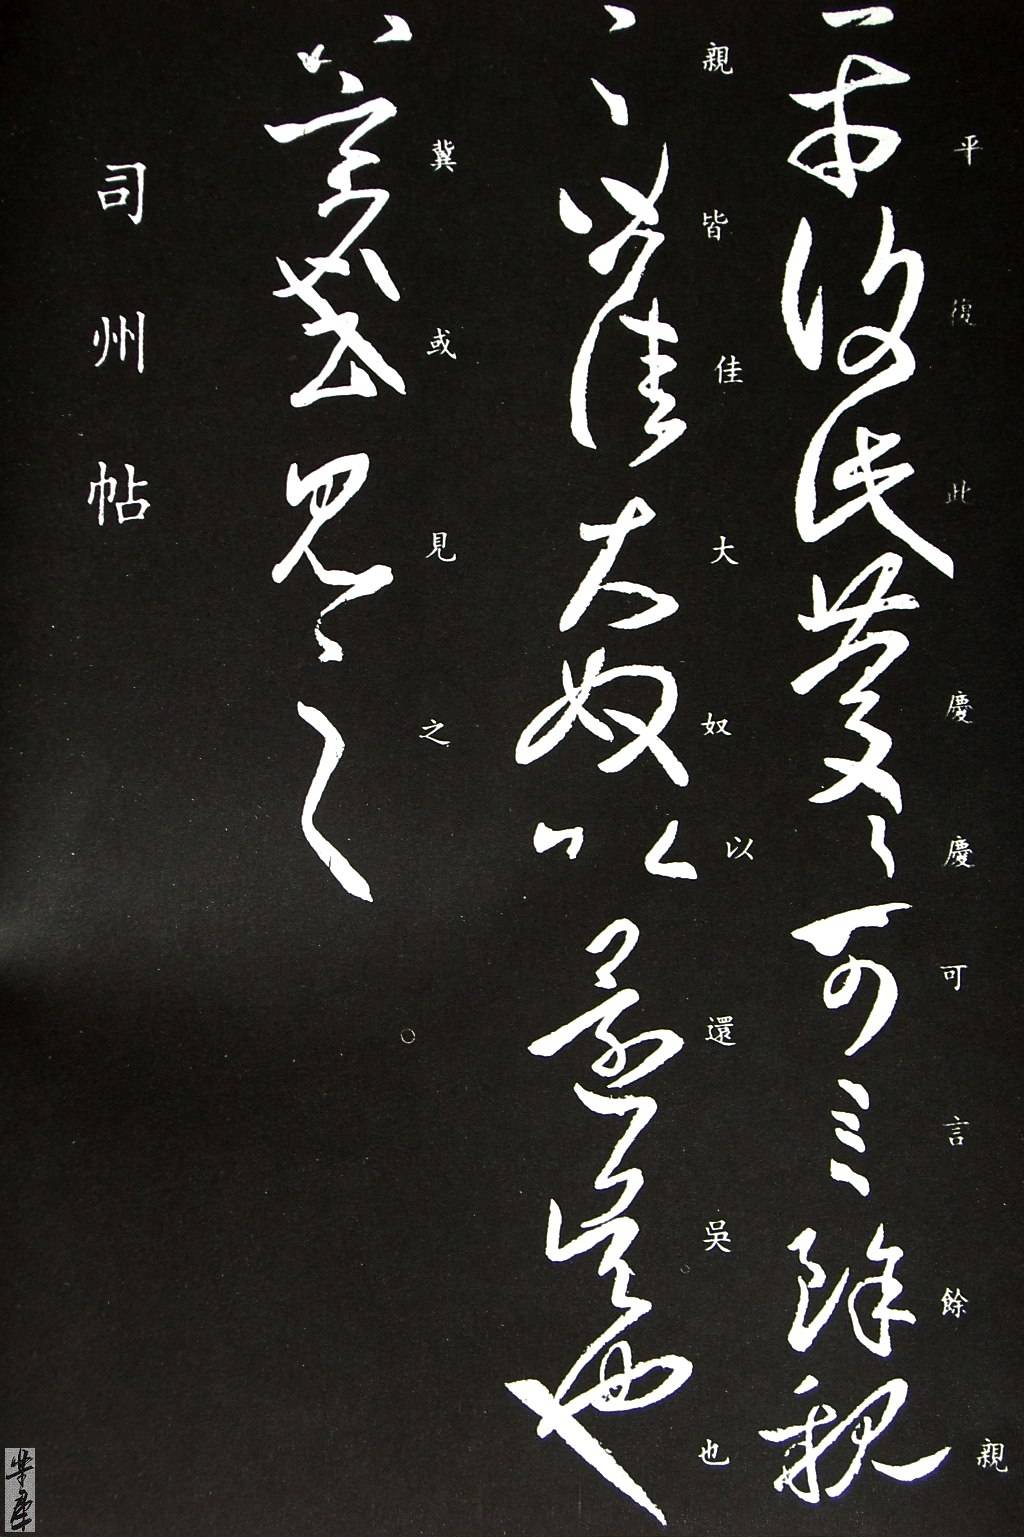 平復此慶慶可言餘親
親皆佳大奴以還吳也
冀或見之
司州帖